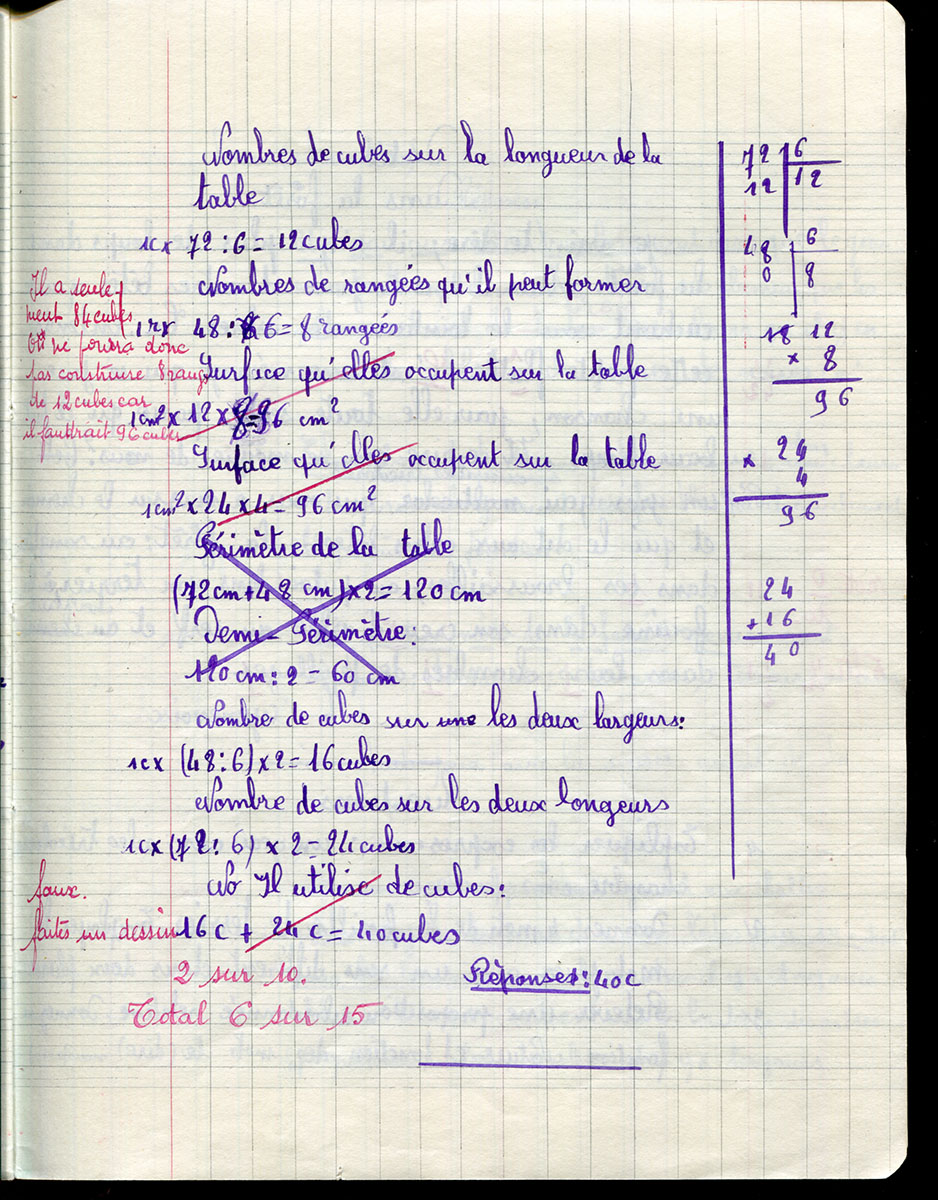 Nombres de cubes sur la longueur de la
table
1c x 72 : 6 = 12 cubes
Nombres de rangées qu'il peut former
1r x 48 : 6 = 8 rangées
Surface qu'elles occupent sur la table
1cm² x 12 x 8 = 96 cm²
Surface qu'elles occupent sur la table
1cm² x 24 x 4 = 96 cm²
Périmètre de la table
(72 cm + 48 cm) x 2 = 120 cm
Demi-Périmètre :
120 cm : 2 = 60 cm
Nombre de cubes sur une les deux largeurs :
1c x (48 : 6) x 2 = 16 cubes
Nombre de cubes sur les deux longeurs
1c x (72 : 6) x 2 = 24 cubes
No Il utilise de cubes :
16 c + 24 c = 40 cubes
Réponses : 40c
Il a seule
ment 84 cubes
ne pourra donc
pas construire 8 rangs
de 12 cubes car
il faudrait 96 cubes
faux.
faites un dessin
2 sur 10.
Total 6 sur 15
72 6
12 12
48 6
0 8
18 12
x 8
96
24
x 4
96
24
+ 16
40